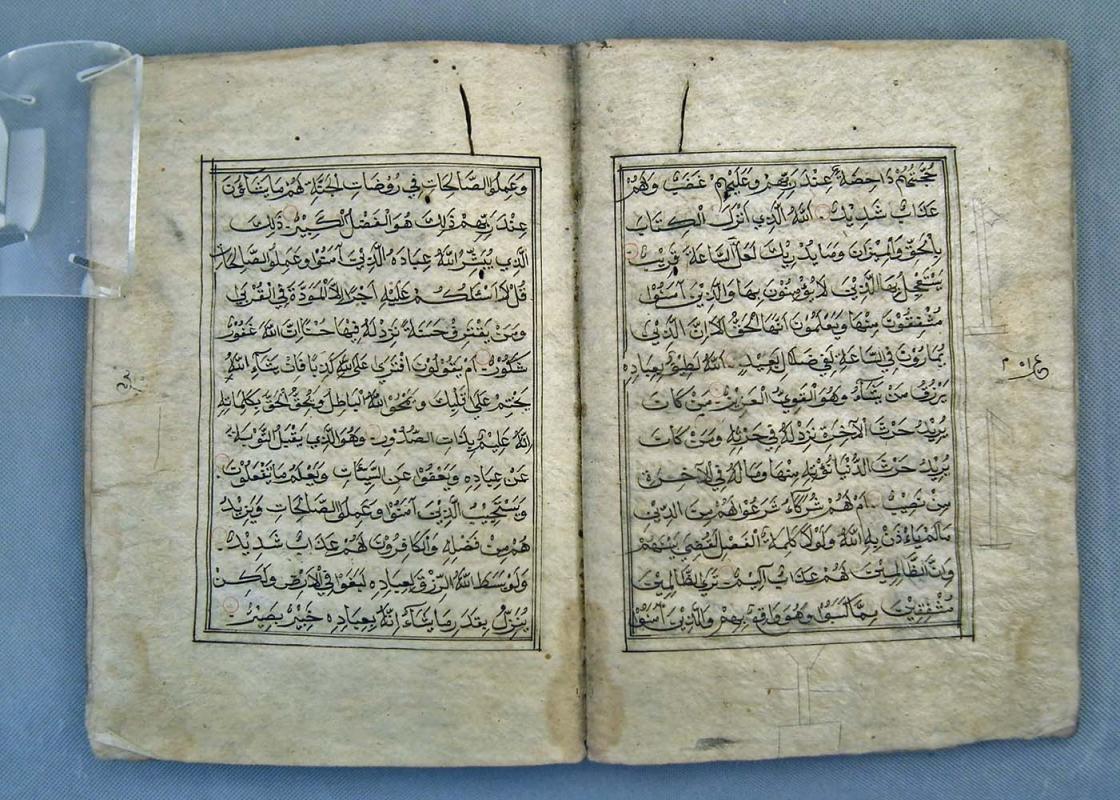 حُجَّتُهُمْ دَاحِضَةٌ عِنْدَ رَبِّهِمْ وَعَلَيْهِمْ غَضَبٌ وَلَهُمْ
عَذَابٌ شَدِيدٌ اَللّٰهُ الَّذِي اَنْزَلَ الْكِتَابَ
بِالْحَقِّ وَالْمِيزَانَ وَمَا يُدْرِيكَ لَعَلَّ السَّاعَةَ قَرِيبٌ
يَسْتَعْجِلُ بِهَا الَّذِينَ لَا يُؤْمِنُونَ بِهَا وَالَّذِينَ آمَنُوا
مُشْفِقُونَ مِنْهَا وَيَعْلَمُونَ اَنَّهَا الْحَقُّ اَلَا اِنَّ الَّذِينَ
يُمَارُونَ فِي السَّاعَةِ لَفِي ضَلَالٍ بَعِيدٍ اَللّٰهُ لَطِيفٌ بِعِبَادِهِ
يَرْزُقُ مَنْ يَشَاءُ وَهُوَ الْقَوِيُّ الْعَزِيزُ مَنْ كَانَ
يُرِيدُ حَرْثَ الْآخِرَةِ نَزِدْ لَهُ فِي حَرْثِهِ وَمَنْ كَانَ
يُرِيدُ حَرْثَ الدُّنْيَا نُؤْتِهِ مِنْهَا وَمَا لَهُ فِي الْآخِرَةِ
مِنْ نَصِيبٍ اَمْ لَهُمْ شُرَكَاءُ شَرَعُوا لَهُمْ مِنَ الدِّينِ
مَا لَمْ يَاْءْذَنْ بِهِ اللّٰهُ وَلَوْلَا كَلِمَةُ الْفَصْلِ لَقُضِيَ بَيْنَهُمْ
وَاِنَّ الظَّالِمِينَ لَهُمْ عَذَابٌ اَلِيمٌ تَرَى الظَّالِمِينَ
مُشْفِقِينَ مِمَّا كَسَبُوا وَهُوَ وَاقِعٌ بِهِمْ وَالَّذِينَ آمَنُوا
وَعَمِلُوا الصَّالِحَاتِ فِي رَوْضَاتِ الْجَنَّةِ لَهُمْ مَا يَشَاؤُنَ
عِنْدَ رَبِّهِمْ ذَلِكَ هُوَ الْفَضْلُ الْكَبِيرُ ذَلِكَ
الَّذِي يُبَشِّرُ اللّٰهُ عِبَادَهُ الَّذِينَ آمَنُوا وَعَمِلُوا الصَّالِحَاتِ
قُلْ لَا اَسْئَلُكُمْ عَلَيْهِ اَجْرًا اِلَّا الْمَوَدَّةَ فِي الْقُرْبَى
وَمَنْ يَقْتَرِفْ حَسَنَةً نَزِدْ لَهُ فِيهَا حُسْنًا اِنَّ اللّٰهَ غَفُورٌ
شَكُورٌ اَمْ يَقُولُونَ افْتَرَى عَلَى اللّٰهِ كَذِبًا فَاِنْ يَشَاءِ اللّٰهُ
يَخْتِمْ عَلَى قَلْبِكَ وَيَمْحُ اللّٰهُ الْبَاطِلَ وَيُحِقُّ الْحَقَّ بِكَلِمَاتِهِ
اِنَّهُ عَلِيمٌ بِذَاتِ الصُّدُورِ وَهُوَ الَّذِي يَقْبَلُ التَّوْبَةَ
عَنْ عِبَادِهِ وَيَعْفُوا عَنِ السَّيِّئَاتِ وَيَعْلَمُ مَا تَفْعَلُونَ
وَيَسْتَجِيبُ الَّذِينَ آمَنُوا وَعَمِلُوا الصَّالِحَاتِ وَيَزِيدُ
هُمْ مِنْ فَضْلِهِ وَالْكَافِرُونَ لَهُمْ عَذَابٌ شَدِيدٌ
وَلَوْ بَسَطَ اللّٰهُ الرِّزْقَ لِعِبَادِهِ لَبَغَوْا فِي الْاَرْضِ وَلَكِنْ
يُنَزِّلُ بِقَدَرٍ مَا يَشَاءُ اِنَّهُ بِعِبَادِهِ خَبِيرٌ بَصِيرٌ